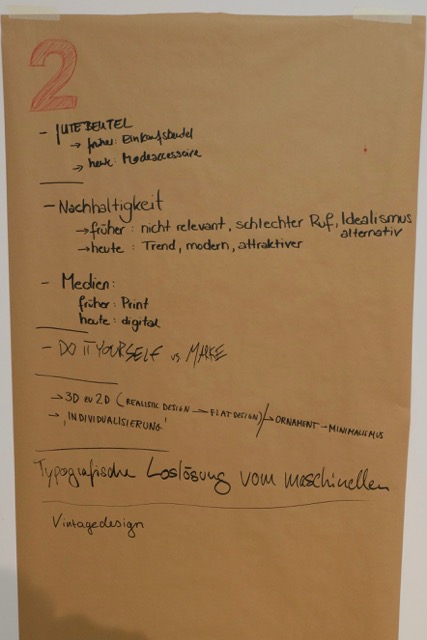 2
- JUTEBEUTEL
→ früher: Einkaufsbeutel
→ heute: Modeaccessoire
- Nachhaltigkeit
→ früher: nicht relevant, schlechter Ruf, Idealismus
alternativ
→ heute: Trend, modern, attraktiver
- Medien:
früher: Print
heute: digital
- DO IT YOURSELF vs MARKE
→ 3D zu 2D (REALISTIC DESIGN → FLAT DESIGN) → ORNAMENT → MINIMALISMUS
→ 'INDIVIDUALISIERUNG'
Typografische Loslösung vom maschinellen
Vintagedesign